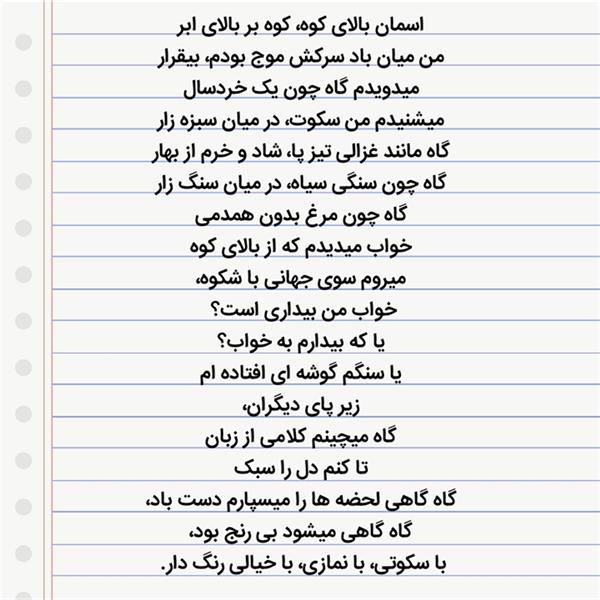 اسمان بالای کوه، کوه بر بالای ابر
من میان باد سرکش موج بودم، بیقرار
میدویدم گاه چون یک خردسال
میشنیدم من سکوت، در میان سبزه زار
گاه مانند غزالی تیز پا، شاد و خرم از بهار
گاه چون سنگی سیاه، در میان سنگ زار
گاه چون مرغ بدون همدمی
خواب میدیدم که از بالای کوه
میروم سوی جهانی با شکوه،
خواب من بیداری است؟
یا که بیدارم به خواب؟
یا سنگم گوشه ای افتاده ام
زیر پای دیگران،
گاه میچینم کلامی از زبان
تا کنم دل را سبک
گاه گاهی لحضه ها را میسپارم دست باد،
گاه گاهی میشود بی رنج بود،
با سکوتی، با نمازی، با خیالی رنگ دار.